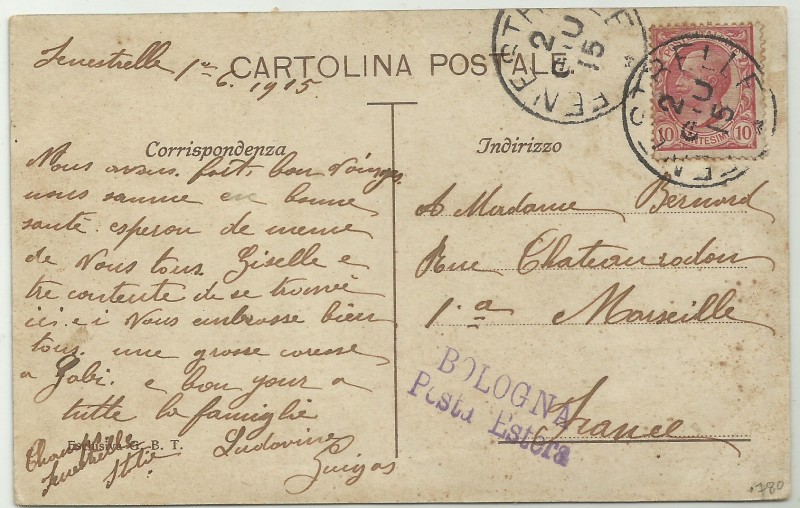 Fenestrelle 1er 6. 1915
CARTOLINA POSTALE
FENESTRELLE
2 GIU 15
FENESTRELLE
2 GIU 15
10 10
Corrispondenza
Nous avons fait bon voiage
nous somme en bonne
santé esperon de meme
de Vous tous. Giselle e
tre contente de se trouvé
ici e i Vous embrasse bien
tous. une grosse caresse
a Gabi. e bon jour a
tutte la famiglie
Ludovine
Esclusiva G. B. T.
Fenestrelle
Italie
Indirizzo
A Madame Bernard
Rue Chateauredon
1. a Marseille
France
BOLOGNA
Posta Estera
780